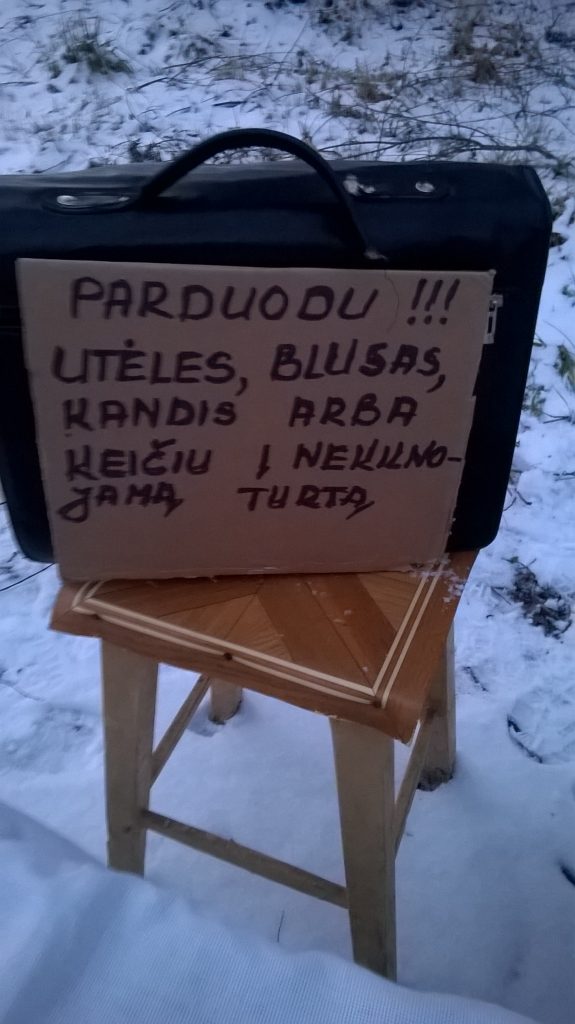 PARDUODU !!!
UTĖLES, BLUSAS,
KANDIS ARBA
KEIČIU Į NEKILNO-
JAMĄ TURTĄ